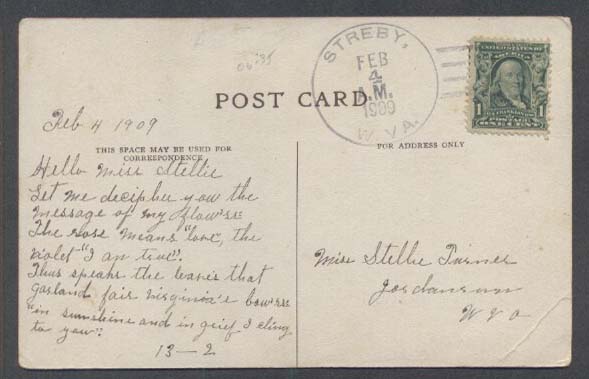 STREBY,
FEB
4
A.M.
1909
W. VA.
UNITED STATES OF AMERICA
1
POST CARD.
Feb 4 1909
THIS SPACE MAY BE USED FOR
CORRESPONDENCE
FOR ADDRESS ONLY
Hello Miss Stellie
Let me decipher you the
message of my flowers
The rose means "love", the
violet "I am true".
Thus speaks the leaves that
garland fair virginia's bowers
"in sunshine and in grief I cling
to you".
13-2
Miss Stellie Turner
W Va